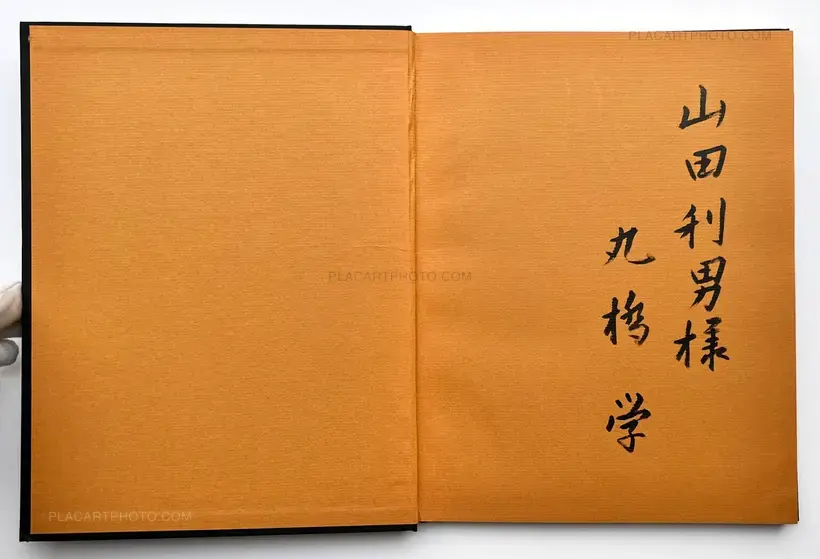 山田利男様
丸橋学
PLACARTPHOTO.COM
PLACARTPHOTO.COM
PLACARTPHOTO.COM